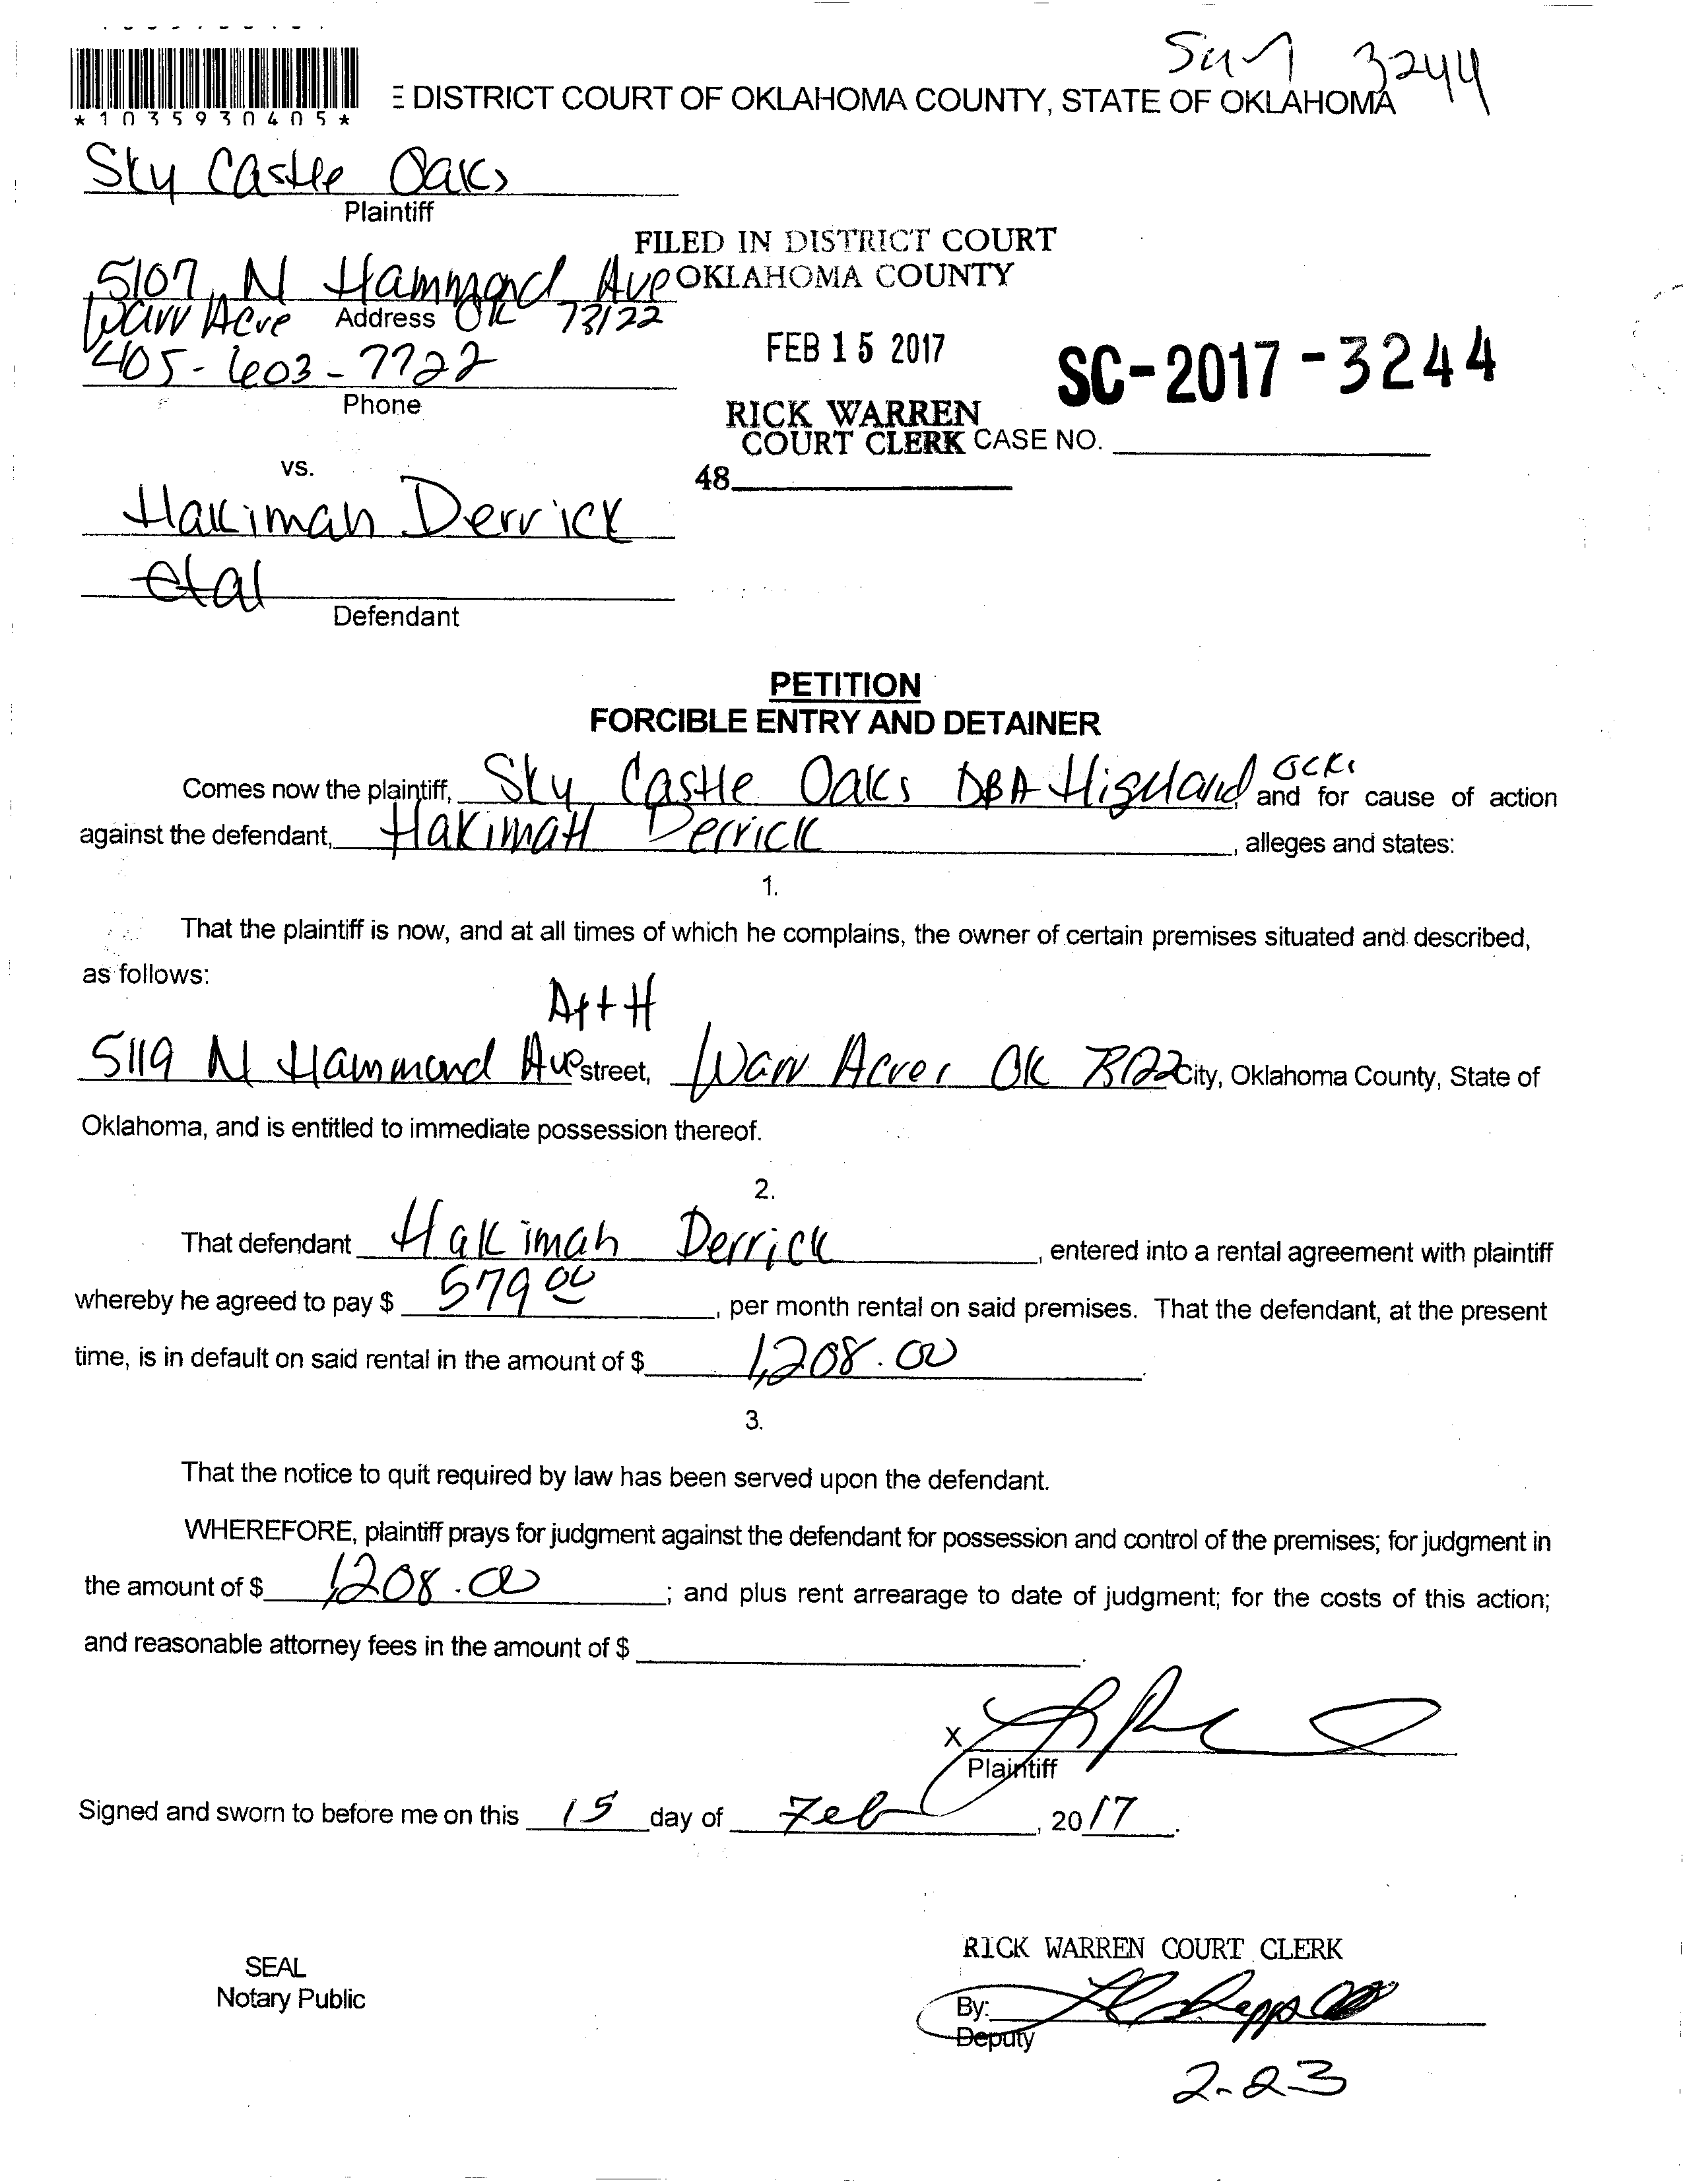 3244
*1035930405*
E DISTRICT COURT OF OKLAHOMA COUNTY, STATE OF OKLAHOMA
Sky Castle Oaks
Plaintiff
FILED IN DISTRICT COURT
OKLAHOMA COUNTY
5107 N Hammond Ave
Warr Acre OK 73122
Address
FEB 15 2017
SC-2017-3244
405-603-7722
Phone
RICK WARREN
COURT CLERK CASE NO.
vs.
48
Hakimah Derrick
etal
Defendant
PETITION
FORCIBLE ENTRY AND DETAINER
Comes now the plaintiff, Sky Castle Oaks DBA Highland and for cause of action
against the defendant, Hakimah Derrick, alleges and states:
1.
That the plaintiff is now, and at all times of which he complains, the owner of certain premises situated and described,
as follows:
Apt H
5119 N Hammond Ave street, Warr Acres OK 73122 City, Oklahoma County, State of
Oklahoma, and is entitled to immediate possession thereof.
2.
That defendant Hakimah Derrick, entered into a rental agreement with plaintiff
whereby he agreed to pay $ 579 00, per month rental on said premises. That the defendant, at the present
time, is in default on said rental in the amount of $ 1,208.00.
3.
That the notice to quit required by law has been served upon the defendant.
WHEREFORE, plaintiff prays for judgment against the defendant for possession and control of the premises; for judgment in
the amount of $ 1,208.00; and plus rent arrearage to date of judgment; for the costs of this action;
and reasonable attorney fees in the amount of $ .
X
Plaintiff
Signed and sworn to before me on this 15 day of Feb, 2017.
RICK WARREN COURT CLERK
SEAL
Notary Public
By:
Deputy
2-23